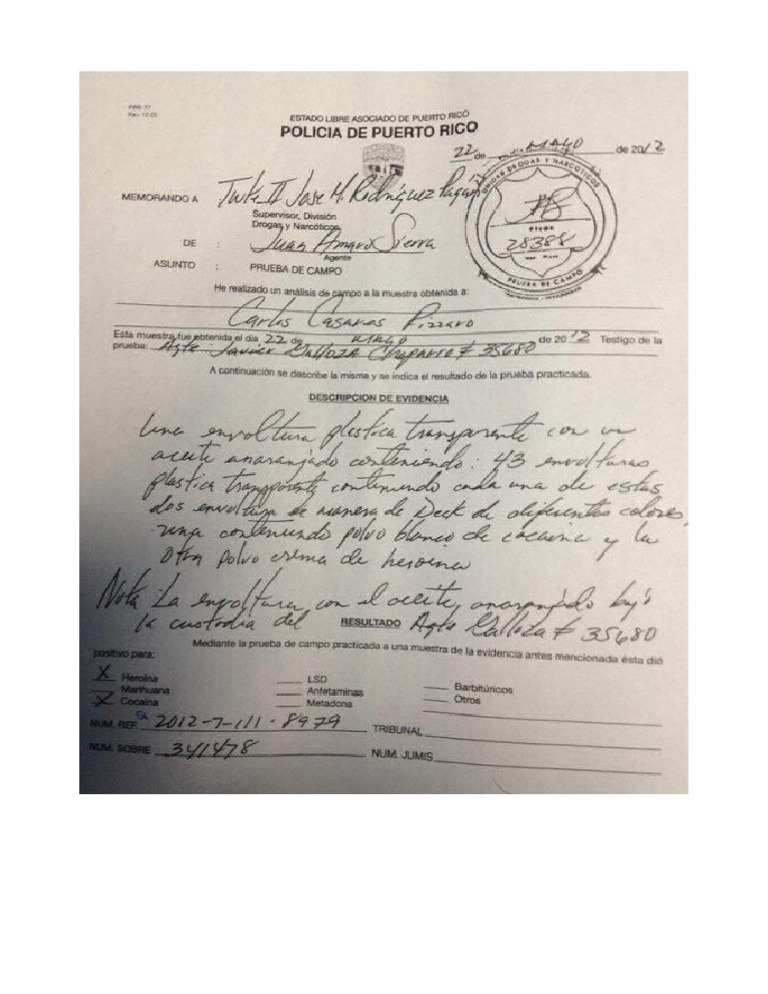 PPR-
Rev. 12-05
ESTADO LIBRE ASOCIADO DE PUERTO RICO
POLICIA DE PUERTO RICO
22 de MAYO de 2012
UNIDAD DROGAS Y NARCÓTICOS
28388
PRUEBA DE CAMPO
MEMORANDO A Tnte II Jose M. Rodriguez Pagan
Supervisor, División
Drogas y Narcóticos
DE : Juan Amaro Sierra
Agente
ASUNTO : PRUEBA DE CAMPO
He realizado un análisis de campo a la muestra obtenida a:
Carlos Casanas Pizzaro
Esta muestra fue obtenida el día 22 de MAYO de 2012 Testigo de la
prueba: Agte Javier Galloza Chaparro # 35680
A continuación se describe la misma y se indica el resultado de la prueba practicada.
DESCRIPCION DE EVIDENCIA
Una envoltura plastica transparente con un
aceite anaranjado conteniendo: 43 envolturas
plastica transparente conteniendo cada una de estas
dos envoltura en manera de Deck de diferentes colores,
una conteniendo polvo blanco de cocaina y la
otra polvo crema de heroina
Nota: La envoltura con el aceite anaranjado bajo
la custodia del Agte Galloza # 35680
RESULTADO
Mediante la prueba de campo practicada a una muestra de la evidencia antes mencionada ésta dió
positivo para:
X Heroína ___ LSD ___ Barbitúricos
___ Marihuana ___ Anfetaminas ___ Otros
X Cocaína ___ Metadona
NUM. REF. 2012-7-111-8979 TRIBUNAL
NUM. SOBRE 341478 NUM. JUMIS